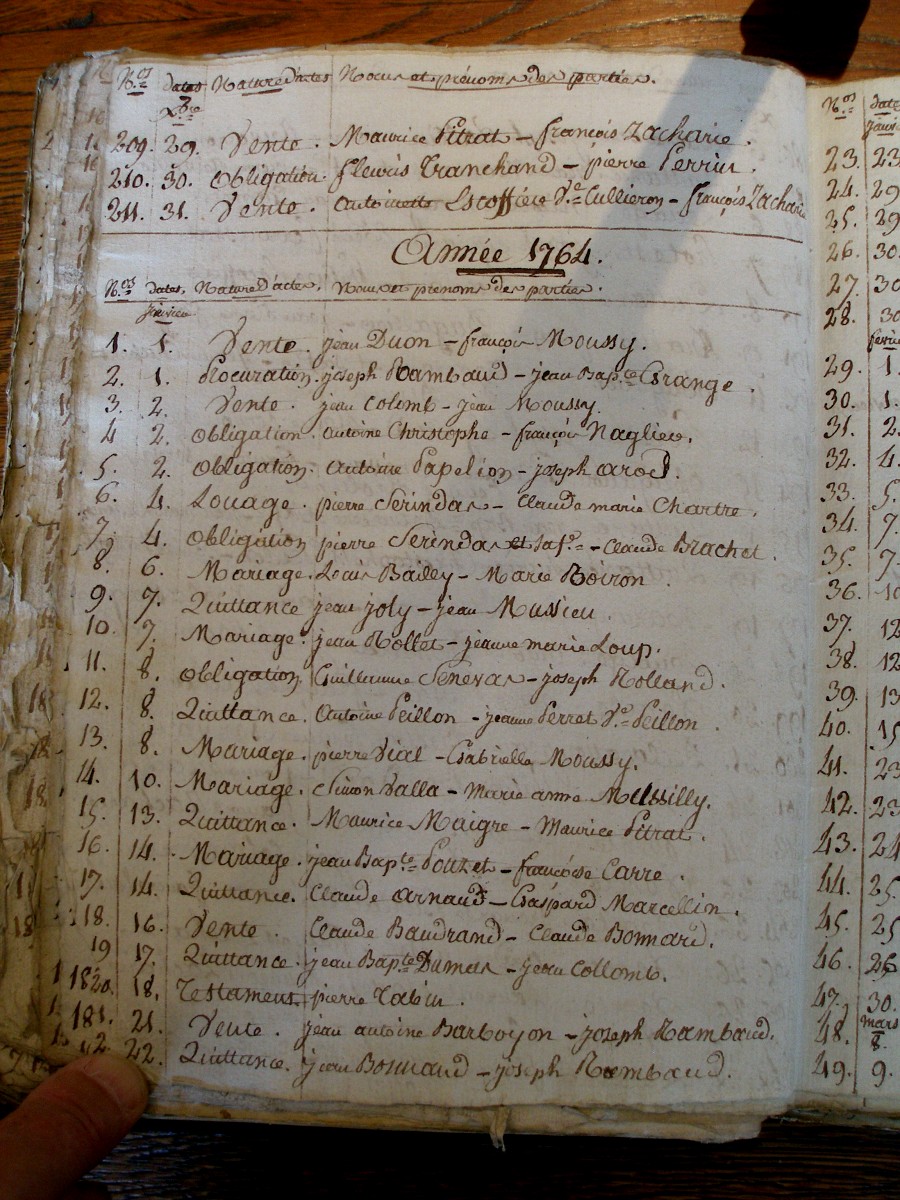 N.os dates Nature d'actes Noms et prénoms des parties.
Xbre
209. 29. Vente. Maurice Pitrat - françois Zacharie.
210. 30. Obligation. fleuris Tranchand - pierre Perrin.
211. 31. Vente. antoinette Escoffier V.e Cullieron - françois Zacharie
Année 1764.
N.os dates. Nature d'actes. Noms et prenoms des parties.
janvier
1. 1. Vente. jean Duon - françois Moussy.
2. 1. Procuration. joseph Rambaud - jean Bap.te Grange.
3. 2. Vente. jean Colomb - jean Moussy.
4 2. Obligation. antoine Christophe - françois
5. 2. Obligation. antoine Papelion - joseph arod.
6. 4. Louage. pierre Serindas - Claude marie Chartre.
7. 4. Obligation pierre Serindas et sa f.e - Claude Brachet.
8. 6. Mariage. Louis Bailly - Marie Boiron.
9. 7. Quittance jean joly - jean Mussieu.
10. 7. Mariage. jean Rollet - jeanne marie Loup.
11. 8. Obligation. Guillaume Senevas - joseph Rolland.
12. 8. Quittance. Antoine Peillon - jeanne Perret V.e Peillon.
13. 8. Mariage. pierre Vial - Gabrielle Moussy.
14. 10. Mariage. Simon Valla - Marie anne Mussilly.
15. 13. Quittance. Maurice Maigre - Maurice Pitrat.
16. 14. Mariage. jean Bap.te Pouzet - françoise Carre.
17. 14. Quittance. Claude arnaud - Gaspard Marcellin.
18. 16. Vente. Claude Baudrand - Claude Bonnard.
19 17. Quittance. jean Bap.te Dumas - jean Collomb.
20. 18. Testament pierre
21. Vente. jean antoine Barboyon - joseph Rambaud.
22. Quittance. jean Bonnaud - joseph Rambaud.
N.os date
janvie
23. 23
24. 29
25. 29
26. 30.
27. 30
28. 30
fevrie
29. 1.
30. 1.
31. 2.
32. 4.
33. 5.
34. 7.
35. 7.
36. 10
37. 12
38. 12
39. 13
40. 15
41. 23
42. 23
43. 24
44. 25.
45. 25
46. 26
47. 30.
mars
48. 8.
49. 9.